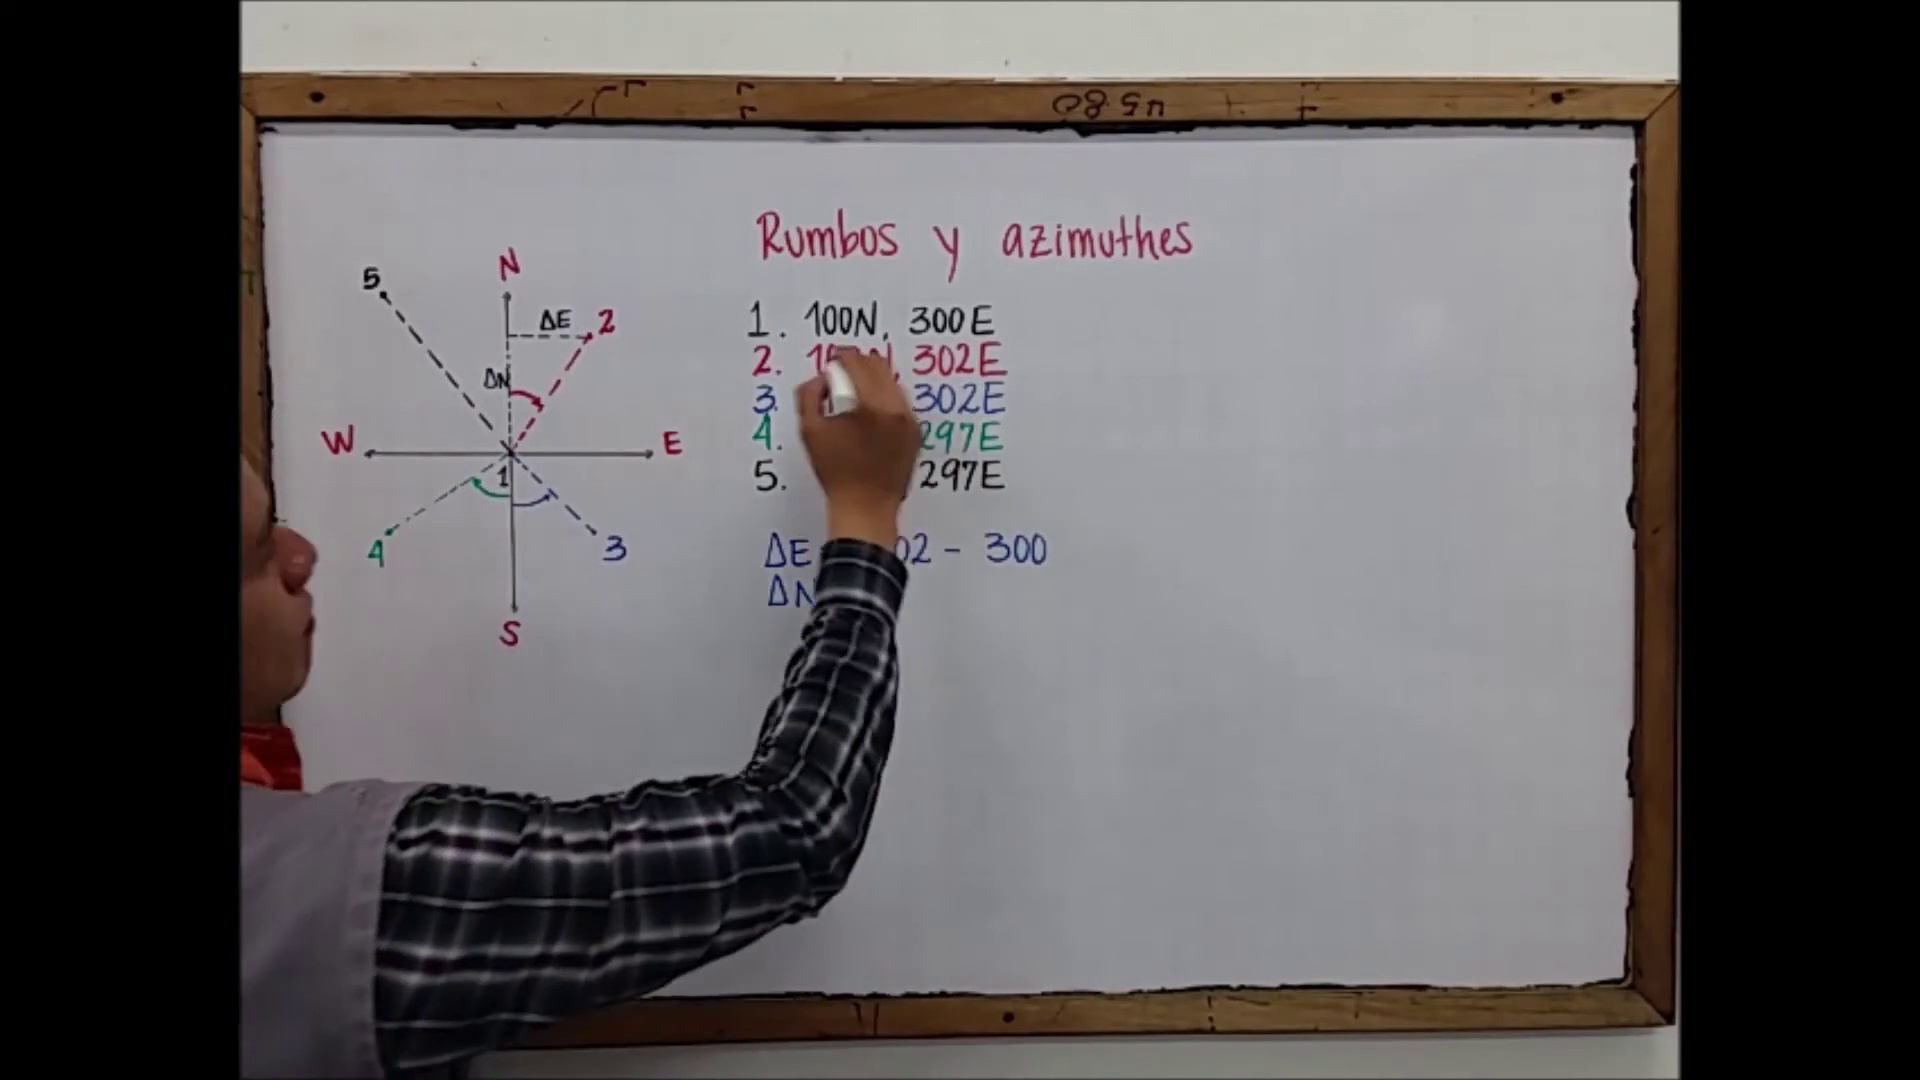 45.80
Rumbos y azimuthes
N
5
ΔE 2
ΔN
W E
1
4 3
S
1. 100N, 300E
2. 302E
3. 302E
4. 297E
5. 297E
ΔE 02 - 300
ΔN